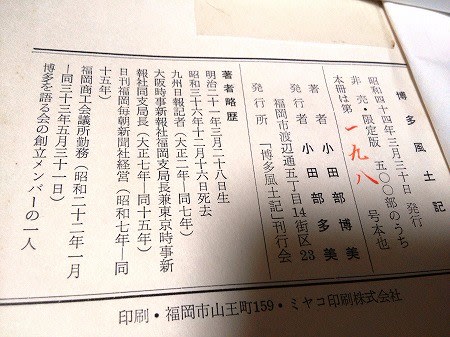 博多風土記
昭和四十四年三月三十日 発行
非売・限定版 五〇〇部のうち
本冊は第 一九八 号本也
著者 小田部博美
発行者 小田部多美
福岡市渡辺通五丁目14街区23
発行所 「博多風土記」刊行会
著者略歴
明治二十一年三月二十八日生
昭和三十六年十二月十六日死去
九州日報記者（大正二年―同七年）
大阪時事新報社福岡支局長兼東京時事新
報社同支局長（大正七年―同十五年）
日刊福岡毎朝新聞社経営（昭和七年―同
十五年）
福岡商工会議所勤務（昭和二十二年一月
―同三十三年五月三十一日）
博多を語る会の創立メンバーの一人
印刷・福岡市山王町159・ミヤコ印刷株式会社